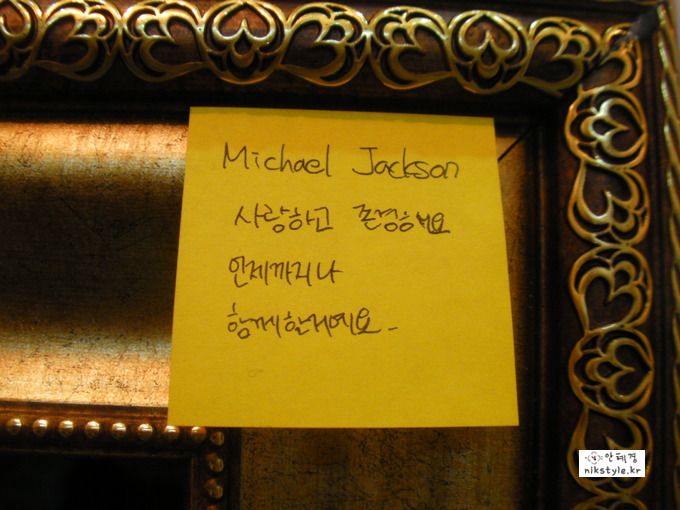 Michael Jackson
사랑하고 존경해요
언제까지나
함께할거예요.
안혜경
nikstyle.kr